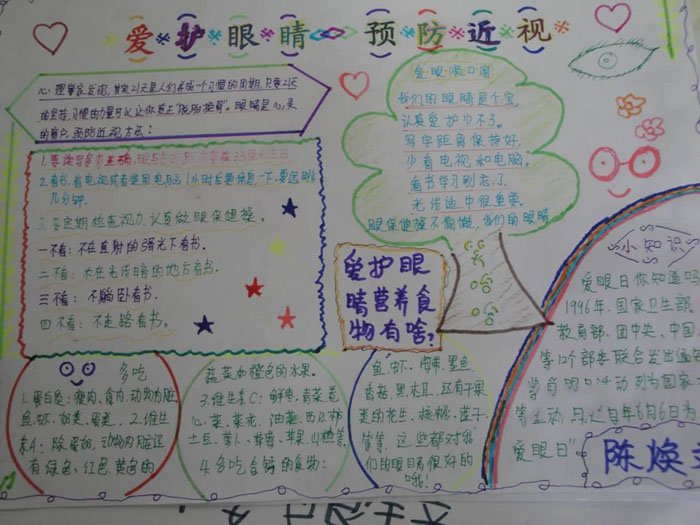 爱护眼睛 预防近视
心理学家发现,其实21天是人们养成一个习惯的周期,只要21天
的坚持,习惯的力量可以让你真正"脱胎换骨"。眼睛是心灵
的窗户,预防近视方法:
1.要读写姿势正确,眼与书
2.看书、看电视或者使用电脑1小时后要休息一下,要远眺
几分钟。
3.要定期检查视力,认真做眼保健操。
一不看:不在直射的强光下看书。
二不看:不在光线暗的地方看书。
三不看:不躺卧看书。
四不看:不走路看书。
爱眼顺口溜
我们的眼睛是个宝,
认真爱护少不了。
写字距离保持好,
少看电视和电脑。
看书学习别忘了,
光线适中很重要。
眼保健操不偷懒,我们的眼睛
爱护眼
睛营养食
物有啥?
多吃
1.蛋白类:瘦肉、禽肉、动物内脏、
鱼、虾、奶类、蛋类。2.维生
素A:除蛋奶、动物内脏还
有绿色、红色、黄色的
蔬菜和橙色的水果。
3.维生素C:鲜枣、青菜、卷
心菜、菜花、油菜、西红柿、
土豆、萝卜、草莓、苹果、山楂等。
4.多吃含锌的食物:
鱼、虾、海带、墨鱼、
香菇、黑木耳,还有干果
类的花生、核桃、莲子
等等,这些都对我
们的眼睛有很好的
哦!
小知识
爱眼日你知道吗
1996年,国家卫生部、
教育部、团中央、中国
等12个部委联合发出通
活动列为国家
等活动,
年6月6日为
爱眼日"
陈焕